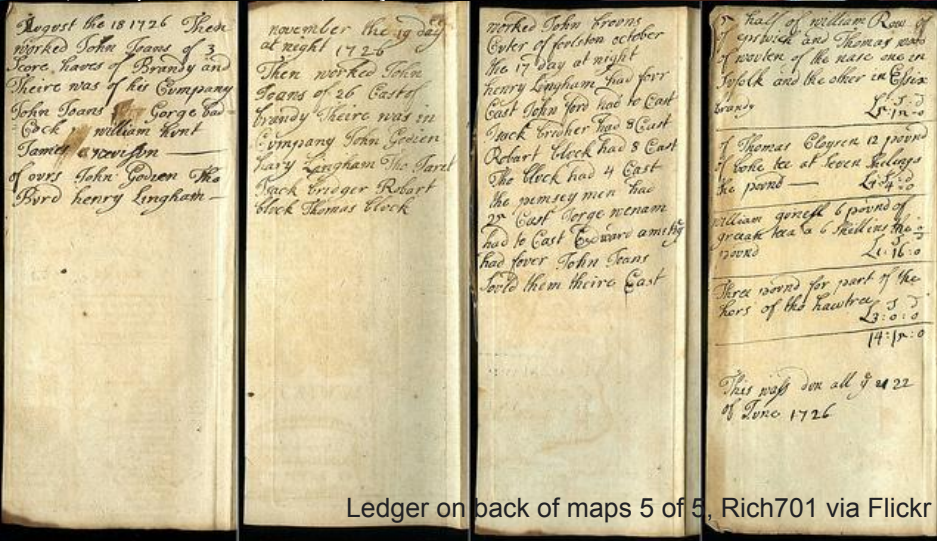 August the 18 1726 Then
worked John Jeans of 3
Score haves of Brandy and
Theire was of his Cumpany
John Jeans Gorge bad-
Cock william hunt
James
of ours John Godien Tho
Burd henry Lingham
november the 19 day
at night 1726
Then worked John
Jeans of 26 Cast of
brandy Theire was in
Cumpany John Godien
hary Lingham Tho
Jack bridger Robart
block Thomas block
worked John browns
Cuter of foulston october
the 17 day at night
henry Lingham had forr
Cast John ford had to Cast
Jack bridher had 8 Cast
Robart block had 8 Cast
Tho block had 4 Cast
the pemsey men had
Cast Jorge wenam
had to Cast Edward
had fover John Jeans
sould them theire Cast
half of william Row of
of epswich and Thomas
of wouten of the nase one in
Sufolk and the other in Essix
brandy
of Thomas 12 pound
of bohe tee at seven shelengs
the pound
william 6 pound of
green tea a 6 shellins the
pound L1:16:0
Three pound for part of the
hors of tho hawtree
L3:0:0
This wass don all ye 21 22
of June 1726
Ledger on back of maps 5 of 5, Rich701 via Flickr